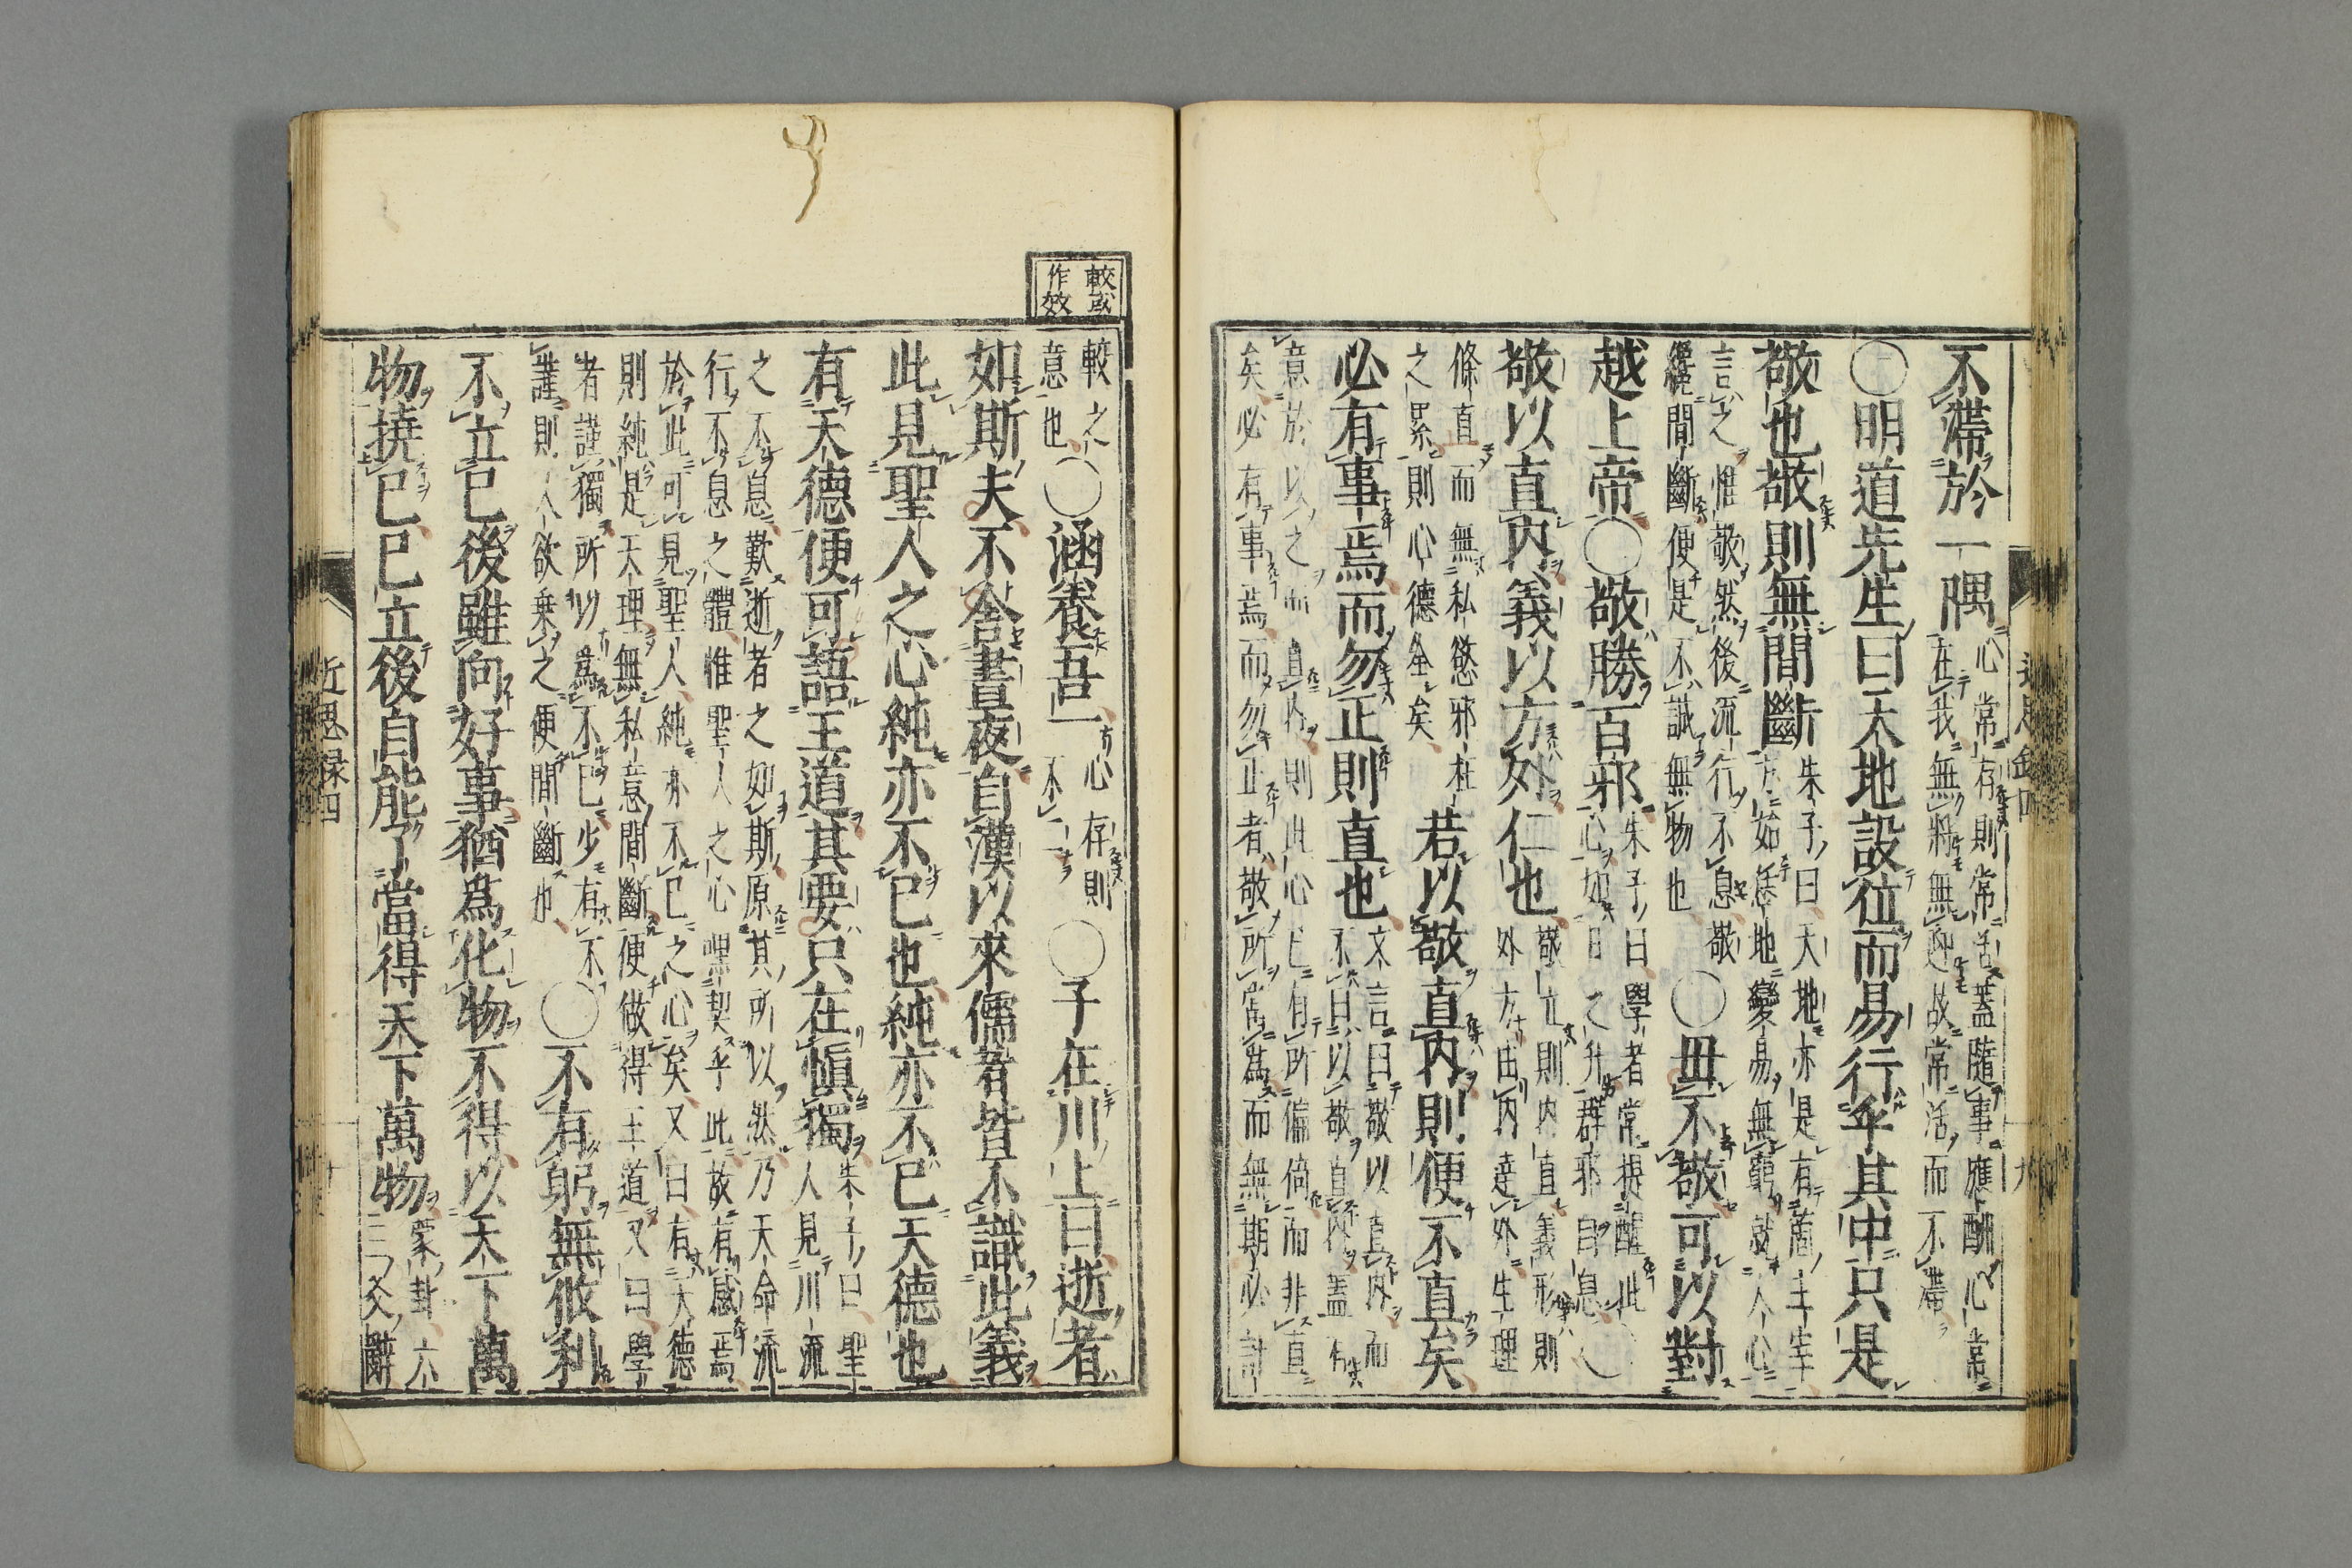 不滯於一隅
心常存則常活蓋隨事應酬心常
在我無將無迎故常活而不滯
○明道先生曰天地設位而易行乎其中只是
敬也敬則無間斷
朱子曰天地亦是有箇主宰
方始恁地變易無窮就人心
言之惟敬然後流行不息敬
纔間斷便是不誠無物也
○毋不敬可以對
越上帝○敬勝百邪
朱子曰學者常提醒此
心如日之升群邪自息
敬以直內義以方外仁也
敬立則內直義形則
外方由內達外生理
條直而無私慾邪枉
之累則心德全矣
若以敬直內則便不直矣
必有事焉而勿正則直也
文言曰敬以直內而
不曰以敬直內蓋有
意於以之而直內則此心已有所偏倚而非直
矣必有事焉而勿正者敬所當為而無期必計
較或
作效
較之
意也
○涵養吾一
心存則
不二
○子在川上曰逝者
如斯夫不舍晝夜自漢以來儒者皆不識此義
此見聖人之心純亦不已也純亦不已天德也
有天德便可語王道其要只在愼獨
朱子曰聖
人見川流
之不息歎逝者之如斯原其所以然乃天命流
行不息之體惟聖人之心默契乎此故有感焉
於此可見聖人純亦不已之心矣又曰有天德
則純是天理無私意間斷便做得王道又曰學
者謹獨所以為不已少有不
謹則人欲乗之便間斷也
○不有躬無攸利
不立已後雖向好事猶為化物不得以天下萬
物撓已已立後自能了當得天下萬物
蒙卦六
三爻辭
近思録四